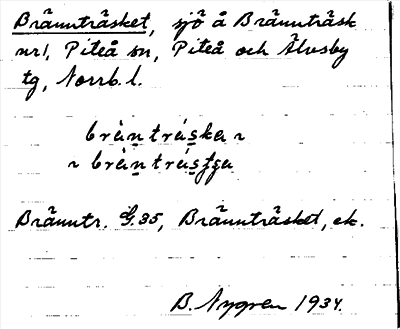 Brännträsket, sjö å Brännträsk
nr 1, Piteå sn, Piteå och Älvsby
tg, Norrb. l.
bràntráska ~
~ bràntrásʈʂa
Bränntr. G. 35, Brännträsket, ek.
B. Nygren 1934.